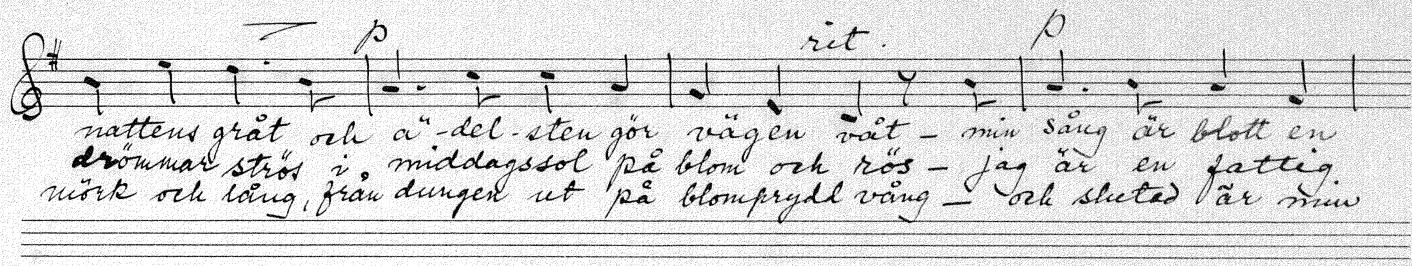 p rit. p
nattens gråt och ä-del-sten gör vägen våt – min sång är blott en
drömmar strös i middagssol på blom och rös – jag är en fattig
mörk och lång, från dungen ut på blomprydd vång – och slutad är min